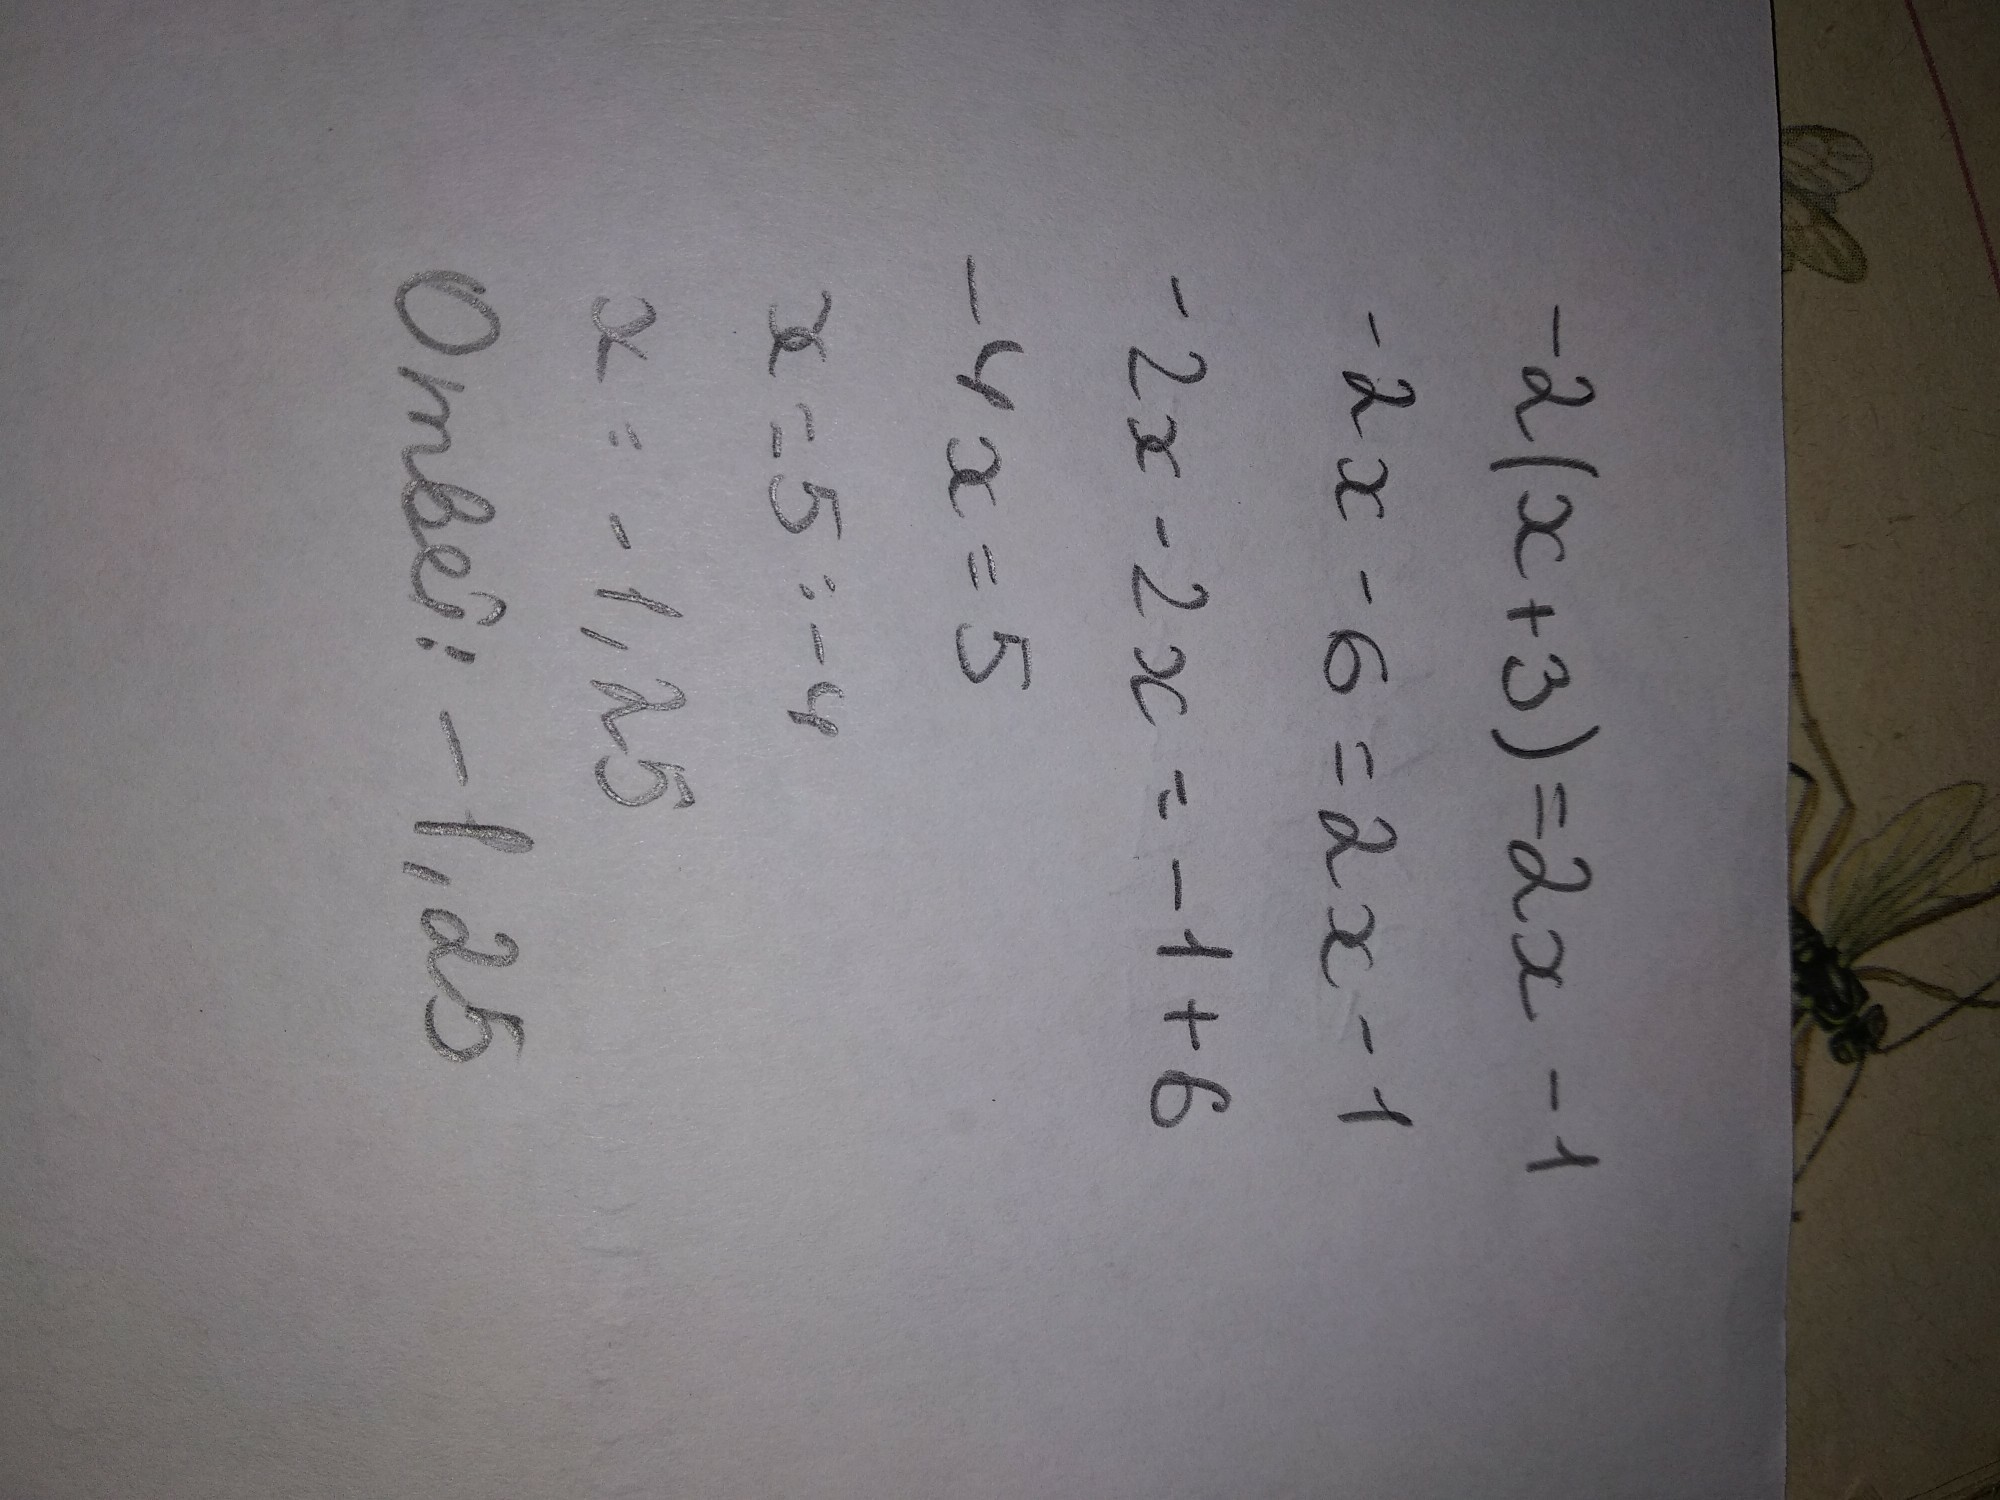 -2(x+3)=2x-1
-2x-6=2x-1
-2x-2x=-1+6
-4x=5
x=5:-4
x=-1,25
Ответ: -1,25